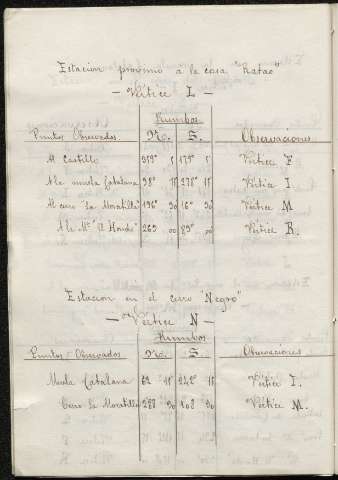 Estacion próximo á la casa "Rafao"
— Vértice L —
Rumbos
Puntos Observados N. S. Observaciones
Al Castillo 359° 5 179° 5 Vértice F
A la muela Catalana 98° 15 278° 15 Vértice I
Al cerro "La Moratilla" 196° 30 16° 30 Vértice M
A la M. "El Hondo" 269 00 89° 00 Vértice R.
Estacion en el cerro "Negro"
— Vértice N —
Rumbos
Puntos Observados N. S. Observaciones
Muela Catalana 62 15 242 15 Vértice I.
Cerro La Moratilla 287 30 108 30 Vértice M.